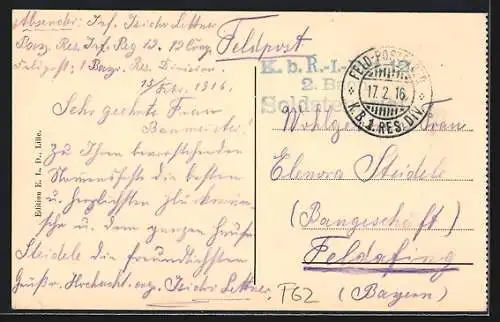 Absender: Inf. Isidor Lettner
Bayr. Res. Inf. Reg 12. 12 Comp.
Feldpost: 1 Bayr. Res. Division.
13/Febr. 1916.
Sehr geehrte Frau
Baumeister!
Zu Ihrem bevorstehenden
Namensfeste die besten
u. herzlichsten Glückwün-
sche u. dem ganzen Hause
Steidele die freundlichsten
Grüße. Hochacht. erg. Isidor Lettner.
Edition E. L. D., Lille.
Feldpost
K. b. R.-I.-
2. B
Soldat
FELD-POST
17.2.16.
K.B.1.RES.DIV.
Wohlgeb. Frau
Elenora Steidele
(Baugeschäft)
Feldafing
(Bayern)
F62